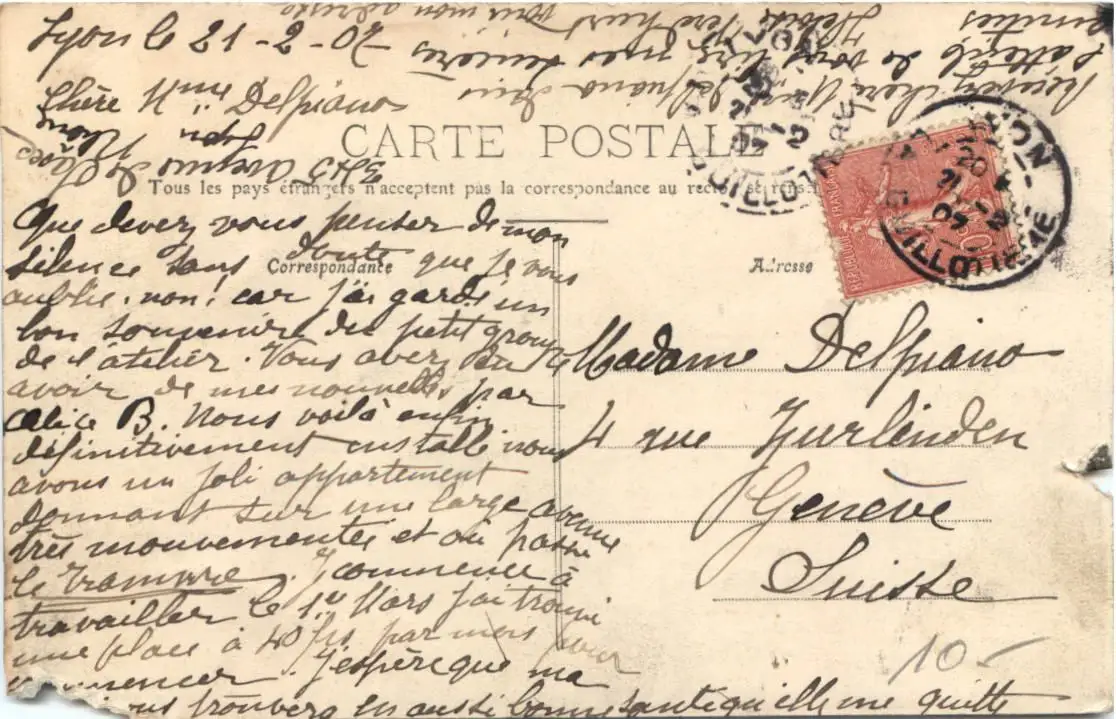 Lyon le 21-2-07
Chère Mme Delpiano
CARTE POSTALE
Tous les pays étrangers n'acceptent pas la correspondance au recto
Correspondance
Adresse
Que devez vous penser de mon
silence sans doute que je vous
oublie. non! car j'ai gardé un
bon souvenir du petit groupe
de l'atelier. Vous avez du
avoir de mes nouvelles par
Alice B. Nous voilà enfin
définitivement installé nous
avons un joli appartement
donnant sur une large avenue
très mouvementée et où passe
le tramway. Je commence à
travailler le 1er Mars j'ai trouvé
une place à 40 frs par mois pour
commencer. J'espère que ma
vous trouvera en aussi bonne santé qu'elle me quitte
Recevez chère Mme Delpiano ainsi
sincères
amitiés
voici mon adresse
Lyon
Rhône
Madame Delpiano
4 rue Zurlinden
Genève
Suisse
10-
LYON
GUILLOTIERE
21-2
07
LYON
GUILLOTIERE
21-2
07
REPUBLIQUE FRANÇAISE
10